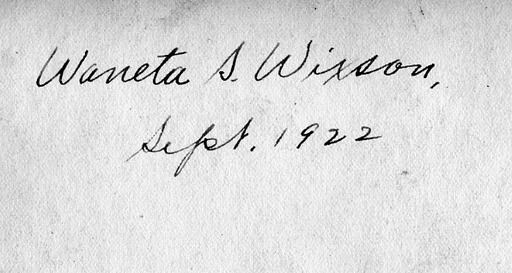 Waneta S. Wixson,
Sept. 1922